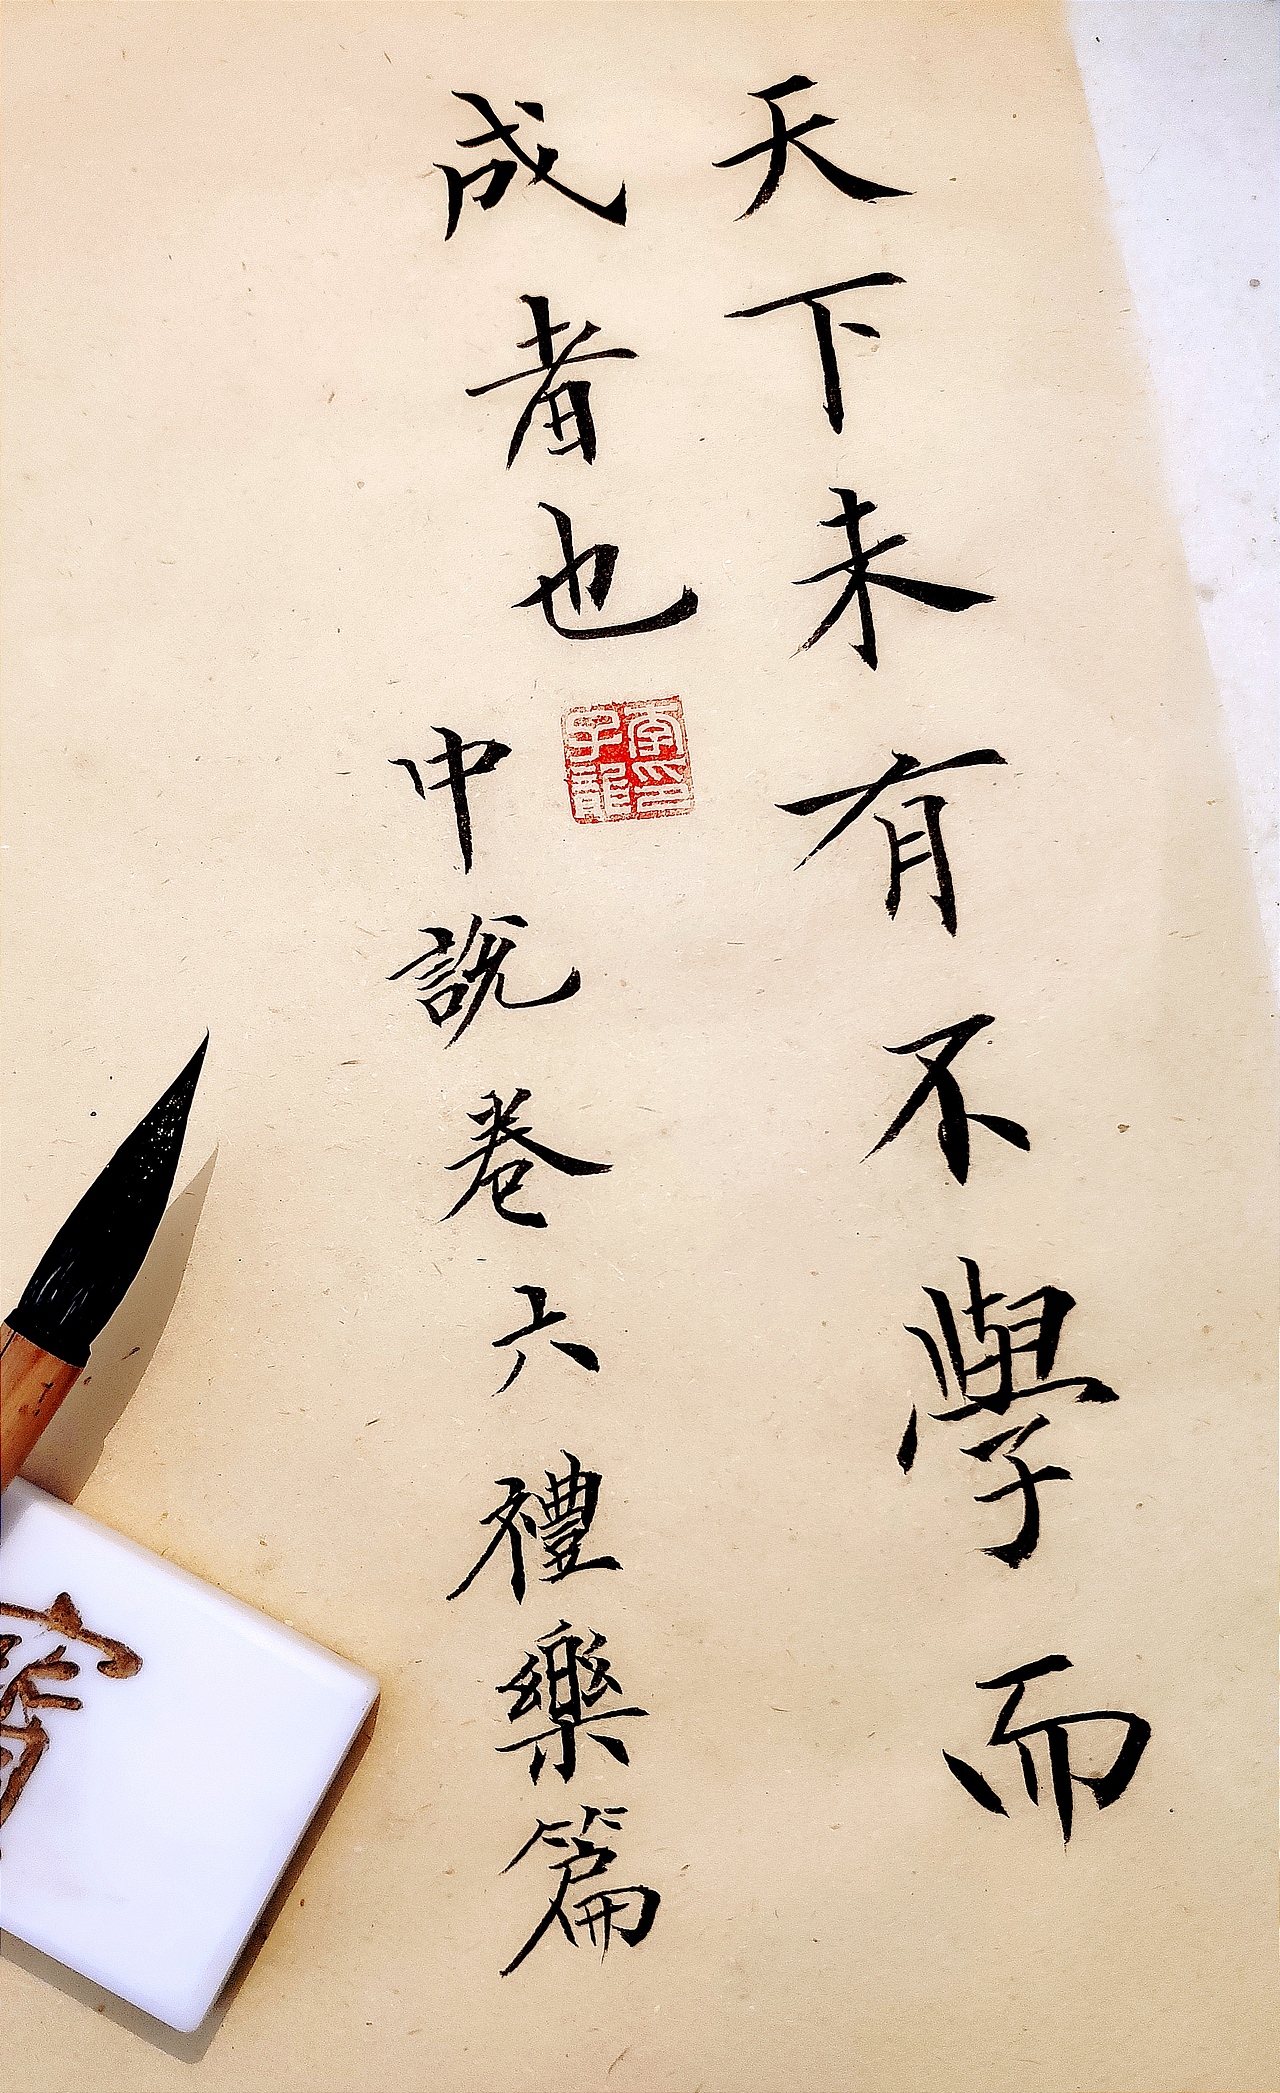 天下未有不學而
成者也
中說卷六禮樂篇